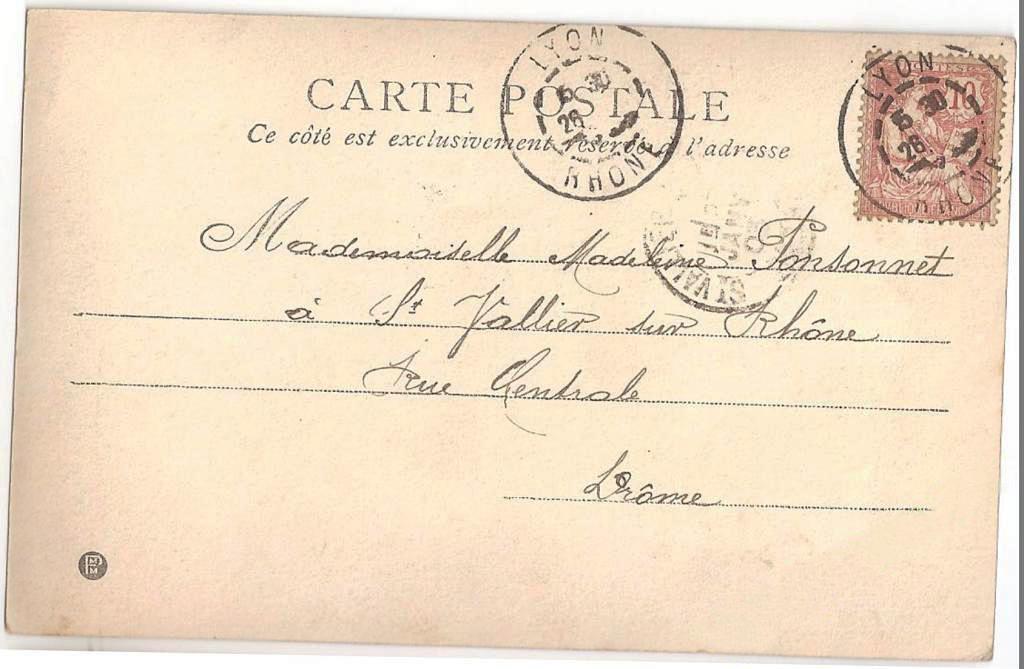 LYON
5 30
26
RHONE
LYON
5 30
26
RHONE
10
CARTE POSTALE
Ce côté est exclusivement réservé à l'adresse
ST VAL
JANV
Mademoiselle Madeleine Ponsonnet
à St Vallier sur Rhône
Rue Centrale
Drôme